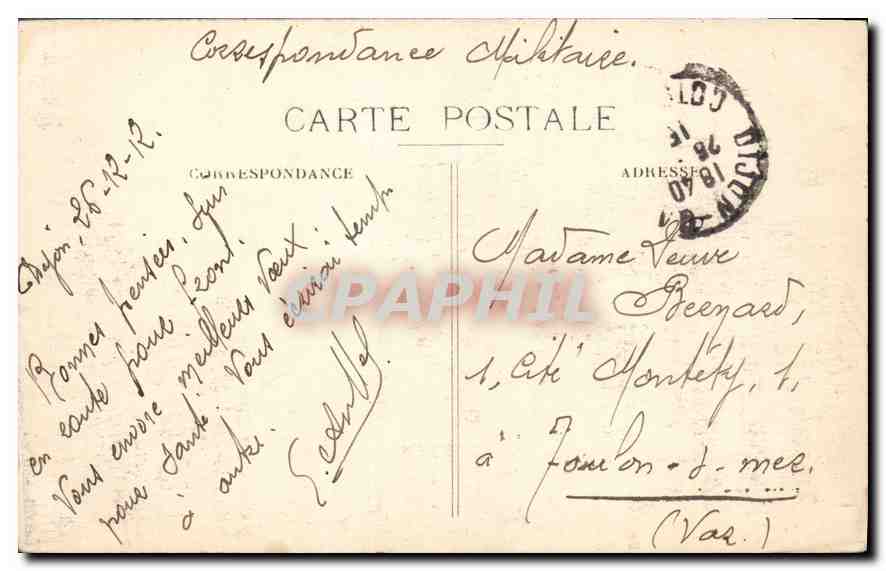 Correspondance Militaire.
CARTE POSTALE
CORRESPONDANCE
ADRESSE
DIJON
COT
18 40
Dijon, 26-12-12.
Bonnes pensées. Suis
en route pour front.
Vous envoie meilleurs vœux
pour santé. Vous écrirai temps
à autre.
Madame Veuve
Bernard,
1, Cité Montéty, 1,
à Toulon-s-mer.
(Var.)
CPAPHIL